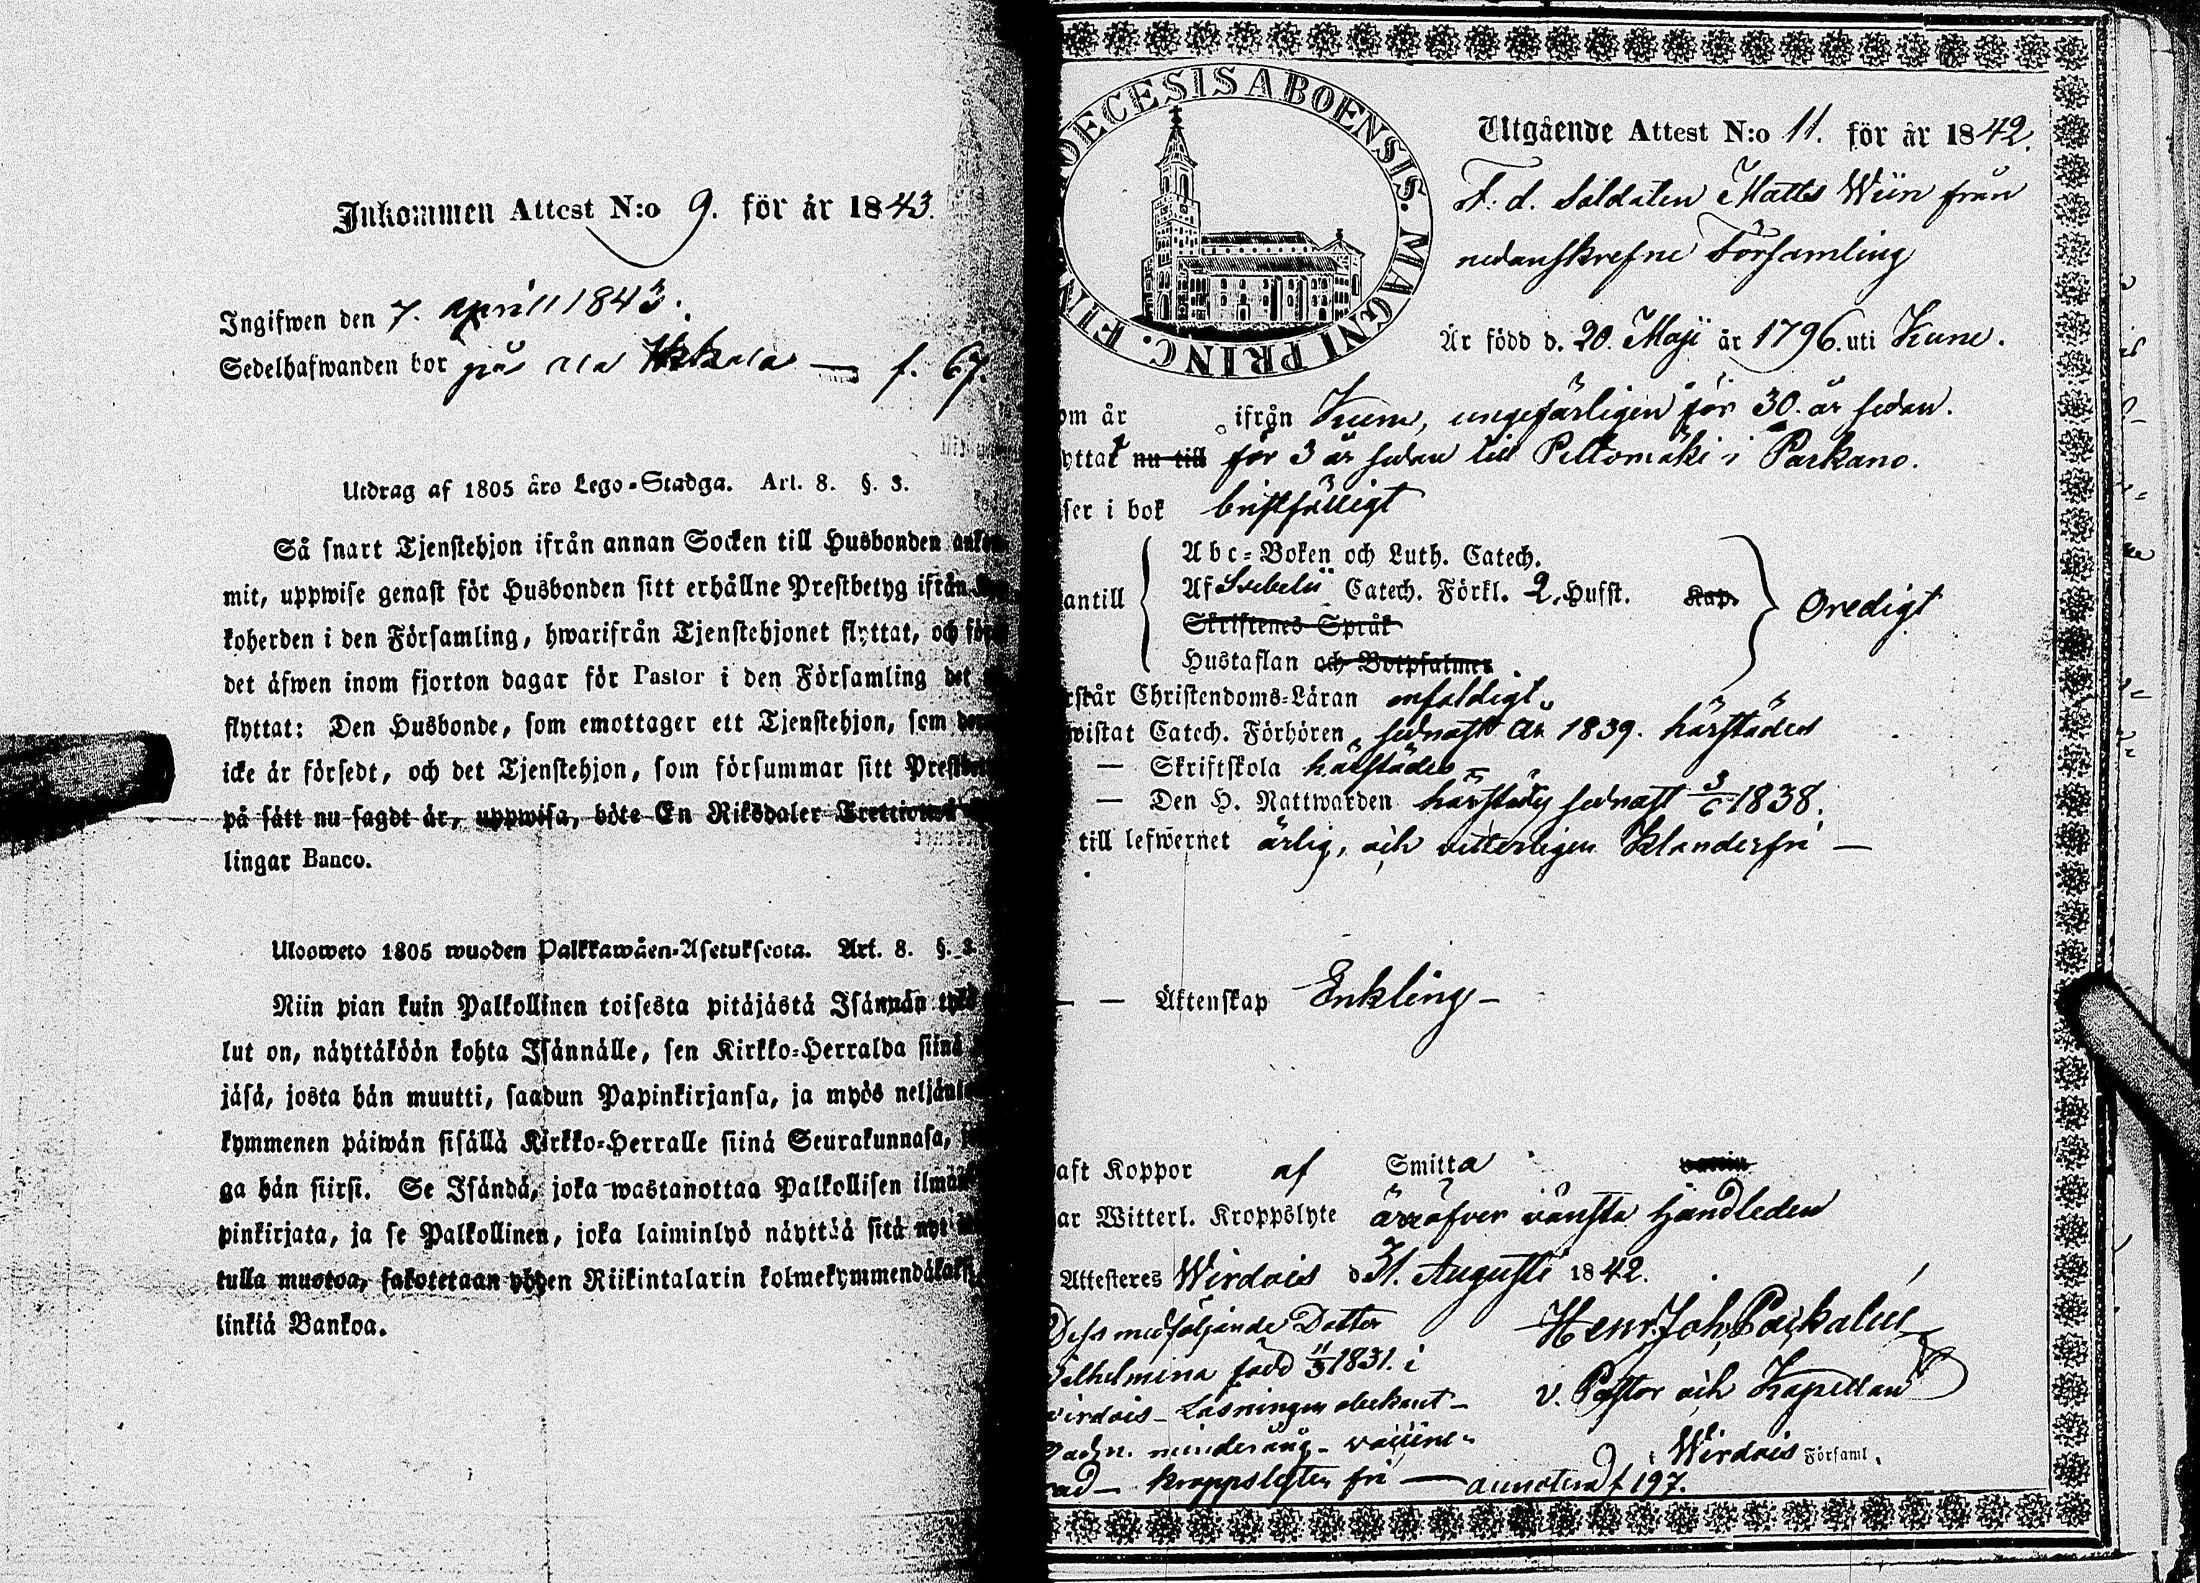 Inkommen Attest N:o 9. för år 1843.
Ingifwen den 7. aprill 1843.
Sedelhafwanden bor på f. 67.
Utdrag af 1805 års Lego-Stadga. Art. 8. §. 3.
Så snart Tjenstehjon ifrån annan Socken till Husbonden
mit, uppwise genast för Husbonden sitt erhållne Prestbetyg ifrån
koherden i den Församling, hwarifrån Tjenstehjonet flyttat, och
det äfwen inom fjorton dagar för Pastor i den Församling det
flyttat: Den Husbonde, som emottager ett Tjenstehjon, som
icke är försedt, och det Tjenstehjon, som försummar sitt
på sätt nu sagdt är, uppwisa, böte En Riksdaler
lingar Banco.
Ulosweto 1805 wuoden Palkkawäen-Asetuksesta. Art. 8. §. 3.
Niin pian kuin Palkollinen toisesta pitäjästä Isännän
lut on, näyttäköön kohta Isännälle, sen Kirkko-Herralda siinä
jäsä, josta hän muutti, saadun Papinkirjansa, ja myös
kymmenen päiwän sisällä Kirkko-Herralle siinä Seurakunnasa,
ga hän siirsi. Se Isändä, joka wastanottaa Palkollisen
pinkirjata, ja se Palkollinen, joka laiminlyö näyttää sitä nyt
tulla muotoa, sakotetaan yhden Riikintalarin
linkiä Bankoa.
DIOECESIS ABOENSIS. MAGNI PRINC. FIN
Utgående Attest N:o 11. för år 1842.
F. d. Soldaten Matts Wiin från
nedanskrefne Församling
Är född d. 20. Maji år 1796. uti Kumo.
om år ifrån Kumo, ungefärligen för 30. år sedan.
yttat nu till för 3 år sedan till Peltomäki i Parkano.
ser i bok bristfälligt
Abc-Boken och Luth. Catech.
antill Af Svebelii Catech. Förkl. 2. Hufst. Kap. Oredigt
Skriftenes Språk
Hustaflan och Botpsalmer
rstår Christendoms-Läran enfaldigt.
wistat Catech. Förhören sednast år 1839. härstädes
— Skriftskola härstädes
— Den H. Nattwarden härstädes sednast 3/6 1838.
till lefwernet ärlig, och vitterligen klanderfri —
— — Äktenskap Enkling —
aft Koppor af Smitta vaccin
ar Witterl. Kroppslyte ärr öfver vänstra handleden
Attesteres Wirdois d. 31. Augusti 1842.
Dess medföljande Dotter
Wilhelmina född 11/3 1831. i
Wirdois — Läsningen obekant —
minderårig — vaccine-
rad — kroppslyten fri — annoterad f 197.
Henr. Joh.
v. Pastor och Kapellan
i Wirdois Församl.